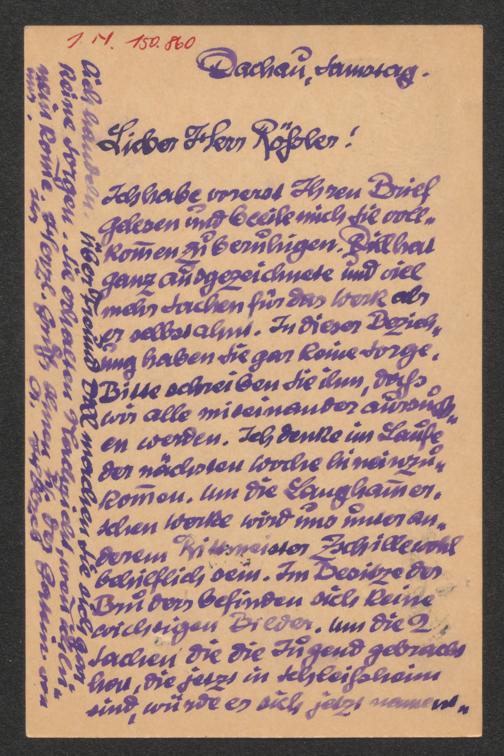 1. IV. 150.860
Dachau, Samstag.
Lieber Herr Rößler!
Ich habe vorerst Ihren Brief
gelesen und beeile mich Sie voll-
kom̅en zu beruhigen. Dill hat
ganz ausgezeichnete und viel
mehr Sachen für das Werk als
er selbst ahnt. In dieser Bezieh-
ung haben Sie gar keine Sorge.
Bitte schreiben Sie ihm, daß
wir alle miteinander aussuch-
en werden. Ich denke im Laufe
der nächsten Woche hineinzu-
kom̅en. Um die Langham̅er-
schen Werke wird uns unter an-
derem Rittmeister Zschille wohl
behilflich sein. Im Besitze des
Bruders befinden sich keine
wichtigen Bilder. Um die 2
Sachen die die Jugend gebracht
hat, die jetzt in Schleißheim
sind, würde es sich jetzt
handeln. Über Freund Dill machen Sie sich gar
keine Sorgen. Sie erhalten Nachricht, wenn
mein Komt. Herzl. Grüße Ihnen